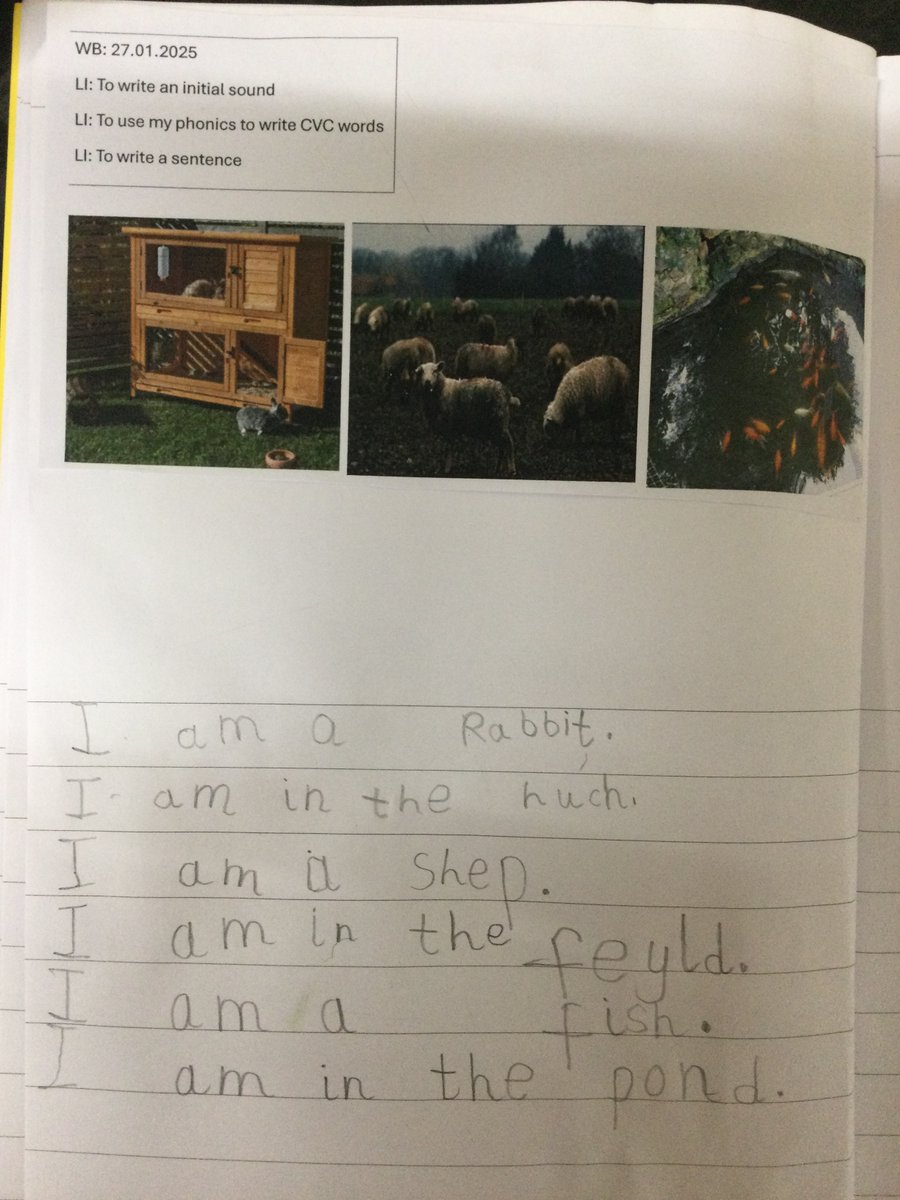 WB: 27.01.2025
LI: To write an initial sound
LI: To use my phonics to write CVC words
LI: To write a sentence
I am a Rabbit.
I am in the huch.
I am a Shep.
I am in the feyld.
I am a fish.
I am in the pond.